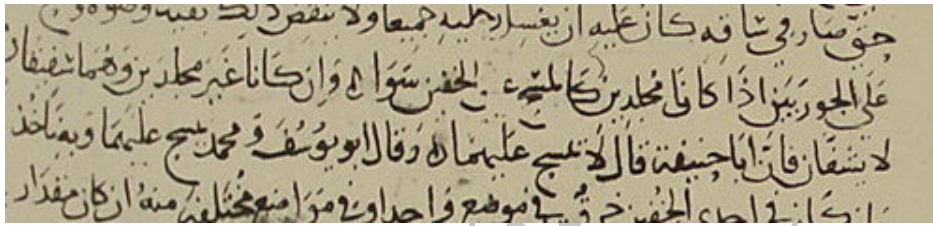 حتى صار في ساقه كان عليه ان يغسل رجليه جميعا ولا ينقض ذلك بقية وضوءه
على الجوربين اذا كانا مجلدين كالمسح على الخفين سوا وان كانا غير مجلدين وهما شفيفان
لا يشفان فان ابا حنيفة قال لا يمسح عليهما وقال ابو يوسف و محمد يمسح عليهما وبه ناخذ
كان في احدى الخفين خرق في موضع واحد او في مواضع مختلفة منه ان كان مقدار